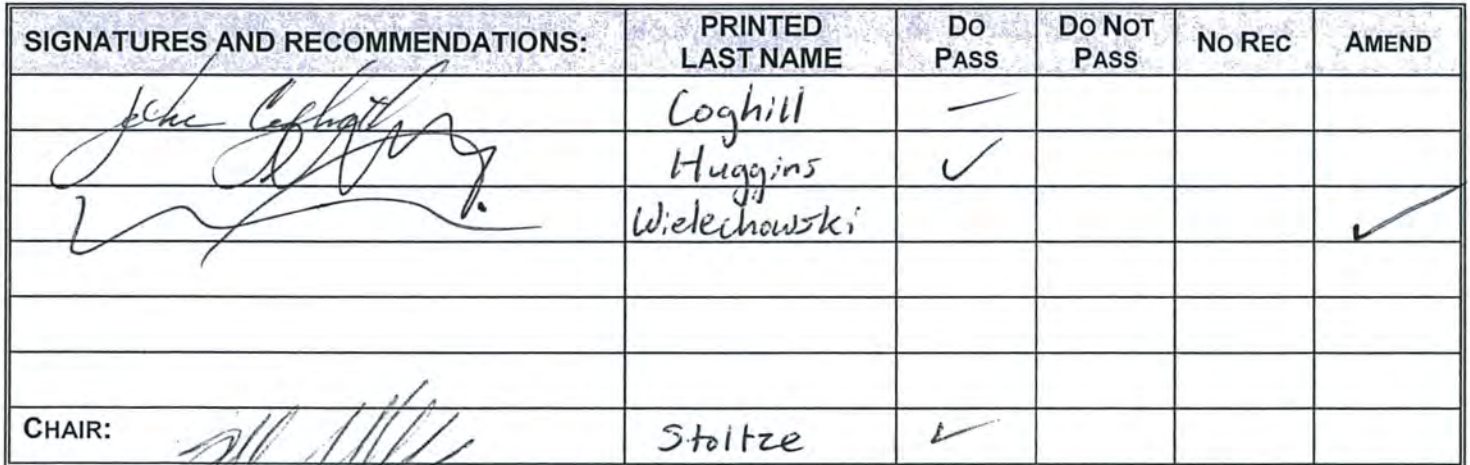 SIGNATURES AND RECOMMENDATIONS: PRINTED LAST NAME DO PASS DO NOT PASS NO REC AMEND
John Coghill Coghill —
Huggins ✓
Wielechowski ✓
CHAIR: Stoltze ✓